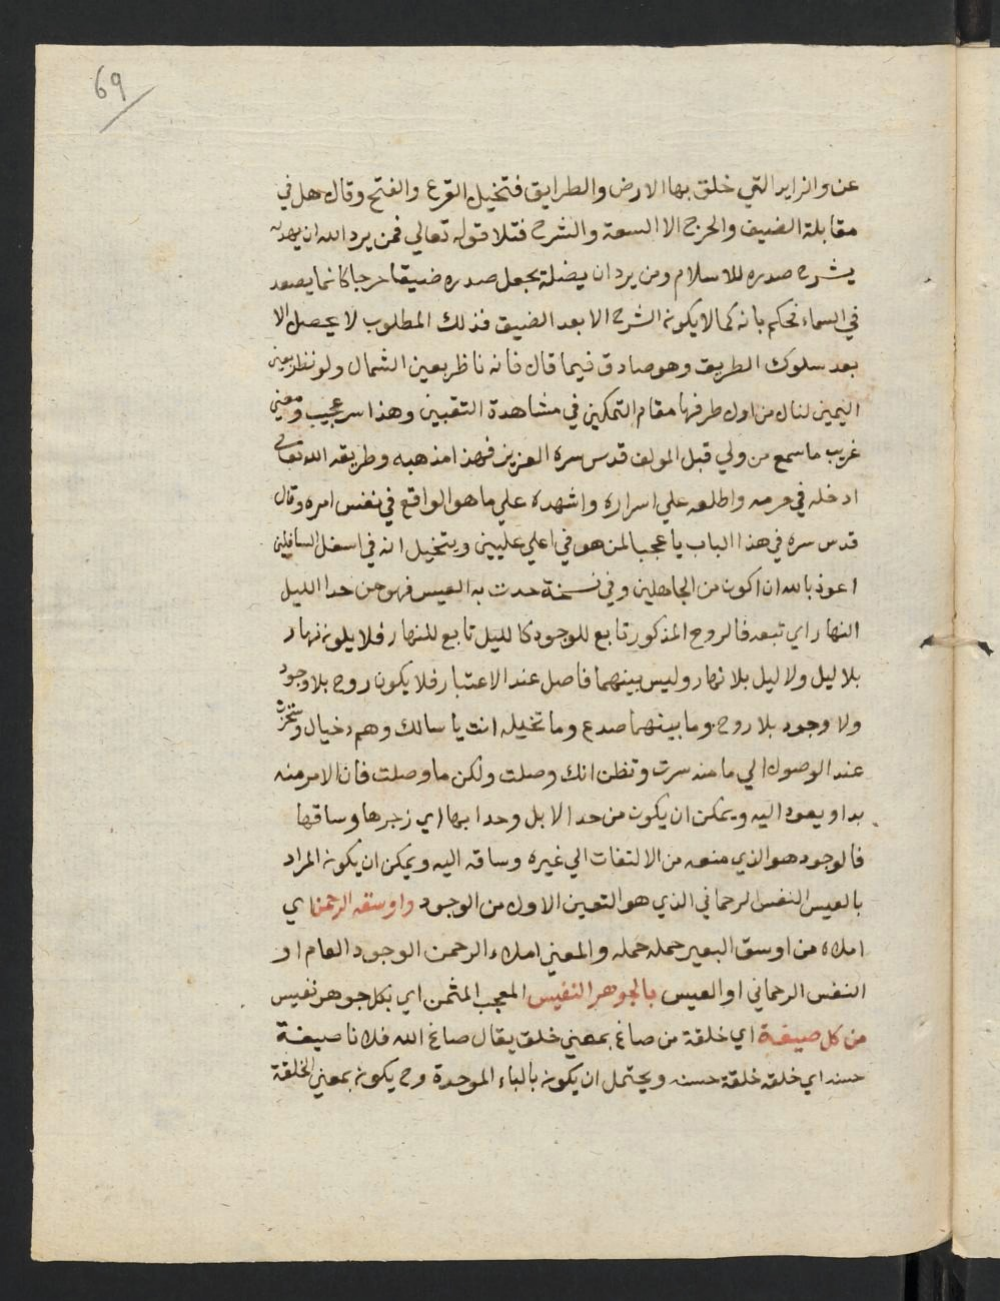 69
عن والزاير التي خلق بها الارض والطرايق فتخيل القرع والفتح وقال هل في
مقابلة الضيق والحرج الا السعة والشرح فتلا قوله تعالي فمن يرد الله ان يهديه
يشرح صدره للاسلام ومن يرد ان يضله يجعل صدره ضيقا حرجا كانما يصعد
في السماء فحكم بانه كما لا يكون الشرح الا بعد الضيق فذلك المطلوب لا يحصل الا
بعد سلوك الطريق وهو صادق فيما قال فانه ناظر بعين الشمال ولو نظر بعين
اليمين لنال من اول طرفها مقام التمكين في مشاهدة التقبين وهذا سر عجيب ومعني
غريب ما سمع من ولي قبل المولف قدس سره العزيز فهذا مذهبه وطريقه الله تعالي
ادخله في حرمه واطلعه علي اسراره واشهده علي ما هو الواقع في نفس امره وقال
قدس سره في هذا الباب يا عجبا لمن هو في اعلي عليين ويتخيل انه في اسفل السافلين
اعوذ بالله ان اكون من الجاهلين وفي نسخة حدت به العيس فهو من حدا الليل
النهار اي تبعه فالروح المذكور تابع للوجود كالليل تابع للنهار فلا يلونه نهار
بلا ليل ولا ليل بلا نهار وليس بينهما فاصل عند الاعتبار فلا يكون روح بلا وجود
ولا وجود بلا روح وما بينهما صدع وما تخيله انت يا سالك وهم وخيال
عند الوصول الي ما منه سرت وتظن انك وصلت ولكن ما وصلت فان الامر منه
بدا ويعود اليه ويمكن ان يكون من حدا الابل وحدا بها اي زجرها وساقها
فالوجود هو الذي منعه من الالتفات الي غيره وساقه اليه ويمكن ان يكون المراد
بالعيس النفس الرحماني الذي هو التعين الاول من الوجود واوسقه الرحمن اي
املاه من اوسق البعير حمله حمله والمعني املاء الرحمن الوجود العام او
النفس الرحماني او العيس بالجوهر النفيس المعجب المثمن اي بكل جوهر نفيس
من كل صيغة اي خلقة من صاغ بمعني خلق يقال صاغ الله فلانا صيغة
حسنه اي خلقه خلقة حسنه ويحتمل ان يكون بالباء الموحدة وح يكون بمعني الخلقة